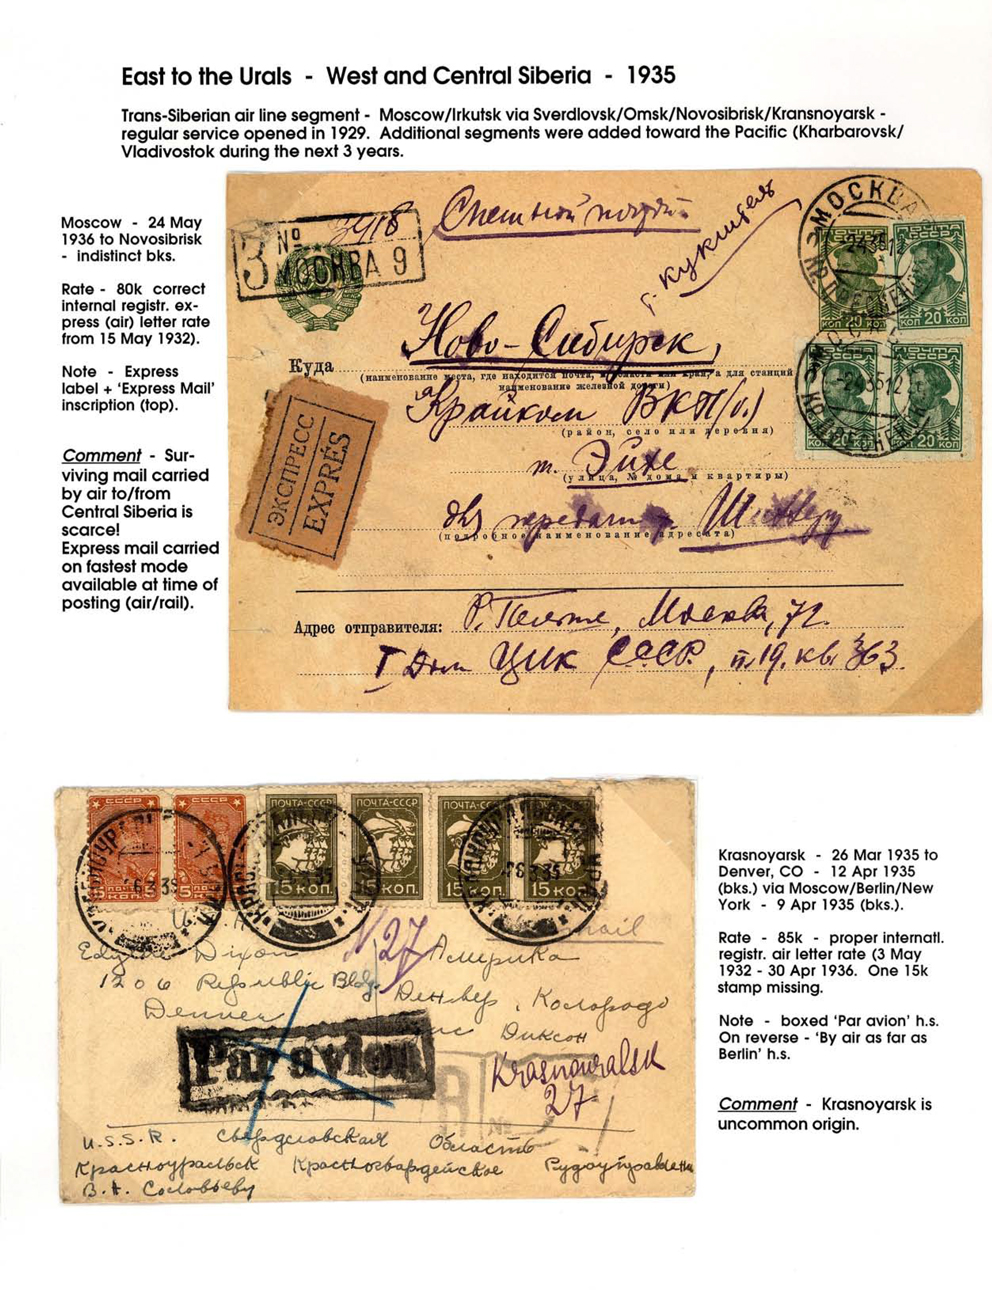 East to the Urals - West and Central Siberia - 1935
Trans-Siberian air line segment - Moscow/Irkutsk via Sverdlovsk/Omsk/Novosibrisk/Kransnoyarsk -
regular service opened in 1929. Additional segments were added toward the Pacific (Kharbarovsk/
Vladivostok during the next 3 years.
Moscow - 24 May
1936 to Novosibrisk
- indistinct bks.
Rate - 80k correct
internal registr. ex-
press (air) letter rate
from 15 May 1932).
Note - Express
label + 'Express Mail'
inscription (top).
Comment - Sur-
viving mail carried
by air to/from
Central Siberia is
scarce!
Express mail carried
on fastest mode
available at time of
posting (air/rail).
З № 3918
МОСКВА 9
МОСКВА
20 КОП КОП 20
КОП 20 КОП 20
Ново-Сибирск,
Куда
(наименование места, где находится почта, и области или края, а для станций
наименование железной дороги)
Крайком ВКП(б)
(район, село или деревня)
т. Эйхе
(улица, № дома и квартиры)
для передачи т.
(подробное наименование адресата)
ЭКСПРЕСС
EXPRÈS
Адрес отправителя: Москва, 72.
I Дом ЦИК СССР, п.19. кв. 363.
СССР СССР ПОЧТА-СССР ПОЧТА-СССР
5 КОП. 15 КОП. 15 КОП. 15 КОП. 15 КОП.
N 27
Dixon Америка
1206 Republic Bldg. Денвер, Колорадо
Denver Диксон
Par avion
Krasnouralsk
27
U.S.S.R. Свердловская Область
Красноуральск Красногвардейское Рудоуправление
В. А. Соловьеву
Krasnoyarsk - 26 Mar 1935 to
Denver, CO - 12 Apr 1935
(bks.) via Moscow/Berlin/New
York - 9 Apr 1935 (bks.).
Rate - 85k - proper internatl.
registr. air letter rate (3 May
1932 - 30 Apr 1936. One 15k
stamp missing.
Note - boxed 'Par avion' h.s.
On reverse - 'By air as far as
Berlin' h.s.
Comment - Krasnoyarsk is
uncommon origin.